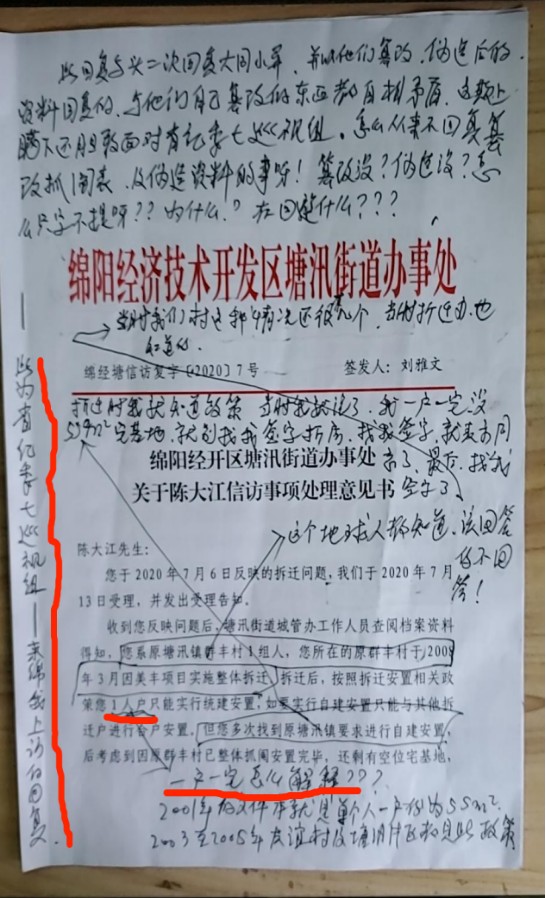 此回复与头二次回复大同小异，并以他们篡改、伪造后的
资料回复的，与他们自己篡改的东西都自相矛盾，这欺上
瞒下还胆敢面对省纪委七巡视组，怎么从来不回复篡
改抓阄表、及伪造资料的事呀！篡改没？伪造没？怎
么只字不提呀？？为什么？在回避什么？？？
绵阳经济技术开发区塘汛街道办事处
当时我们村这种情况还很几个，当时拆迁办也
知道的
绵经塘信访复字〔2020〕7号 签发人：刘雅文
拆迁时我就知道政策，当时我就说了，我一户一宅没
55m²宅基地，就别找我签字拆房，找我签字，就要按同
绵阳经开区塘汛街道办事处
意了，最后，找我
关于陈大江信访事项处理意见书
签字了
这个地球人都知道，该回答
的不回
答！
陈大江先生：
您于2020年7月6日反映的拆迁问题，我们于2020年7月
13日受理，并发出受理告知。
收到您反映问题后，塘汛街道城管办工作人员查阅档案资料
得知，您系原塘汛镇群丰村1组人，您所在的原群丰村于2008
年3月因美丰项目实施整体拆迁，拆迁后，按照拆迁安置相关政
策您1人户只能实行统建安置，如要实行自建安置只能与其他拆
迁户进行合户安置，但您多次找到原塘汛镇要求进行自建安置，
后考虑到因原群丰村已整体抓阄安置完毕，还剩有空位宅基地，
一户一宅怎么解释？？？
2001年的文件本就是单个人一户的为55m²。
2003至2005年友谊村及塘汛片区都是此政策
此为省纪委七巡视组——来绵我上访的回复